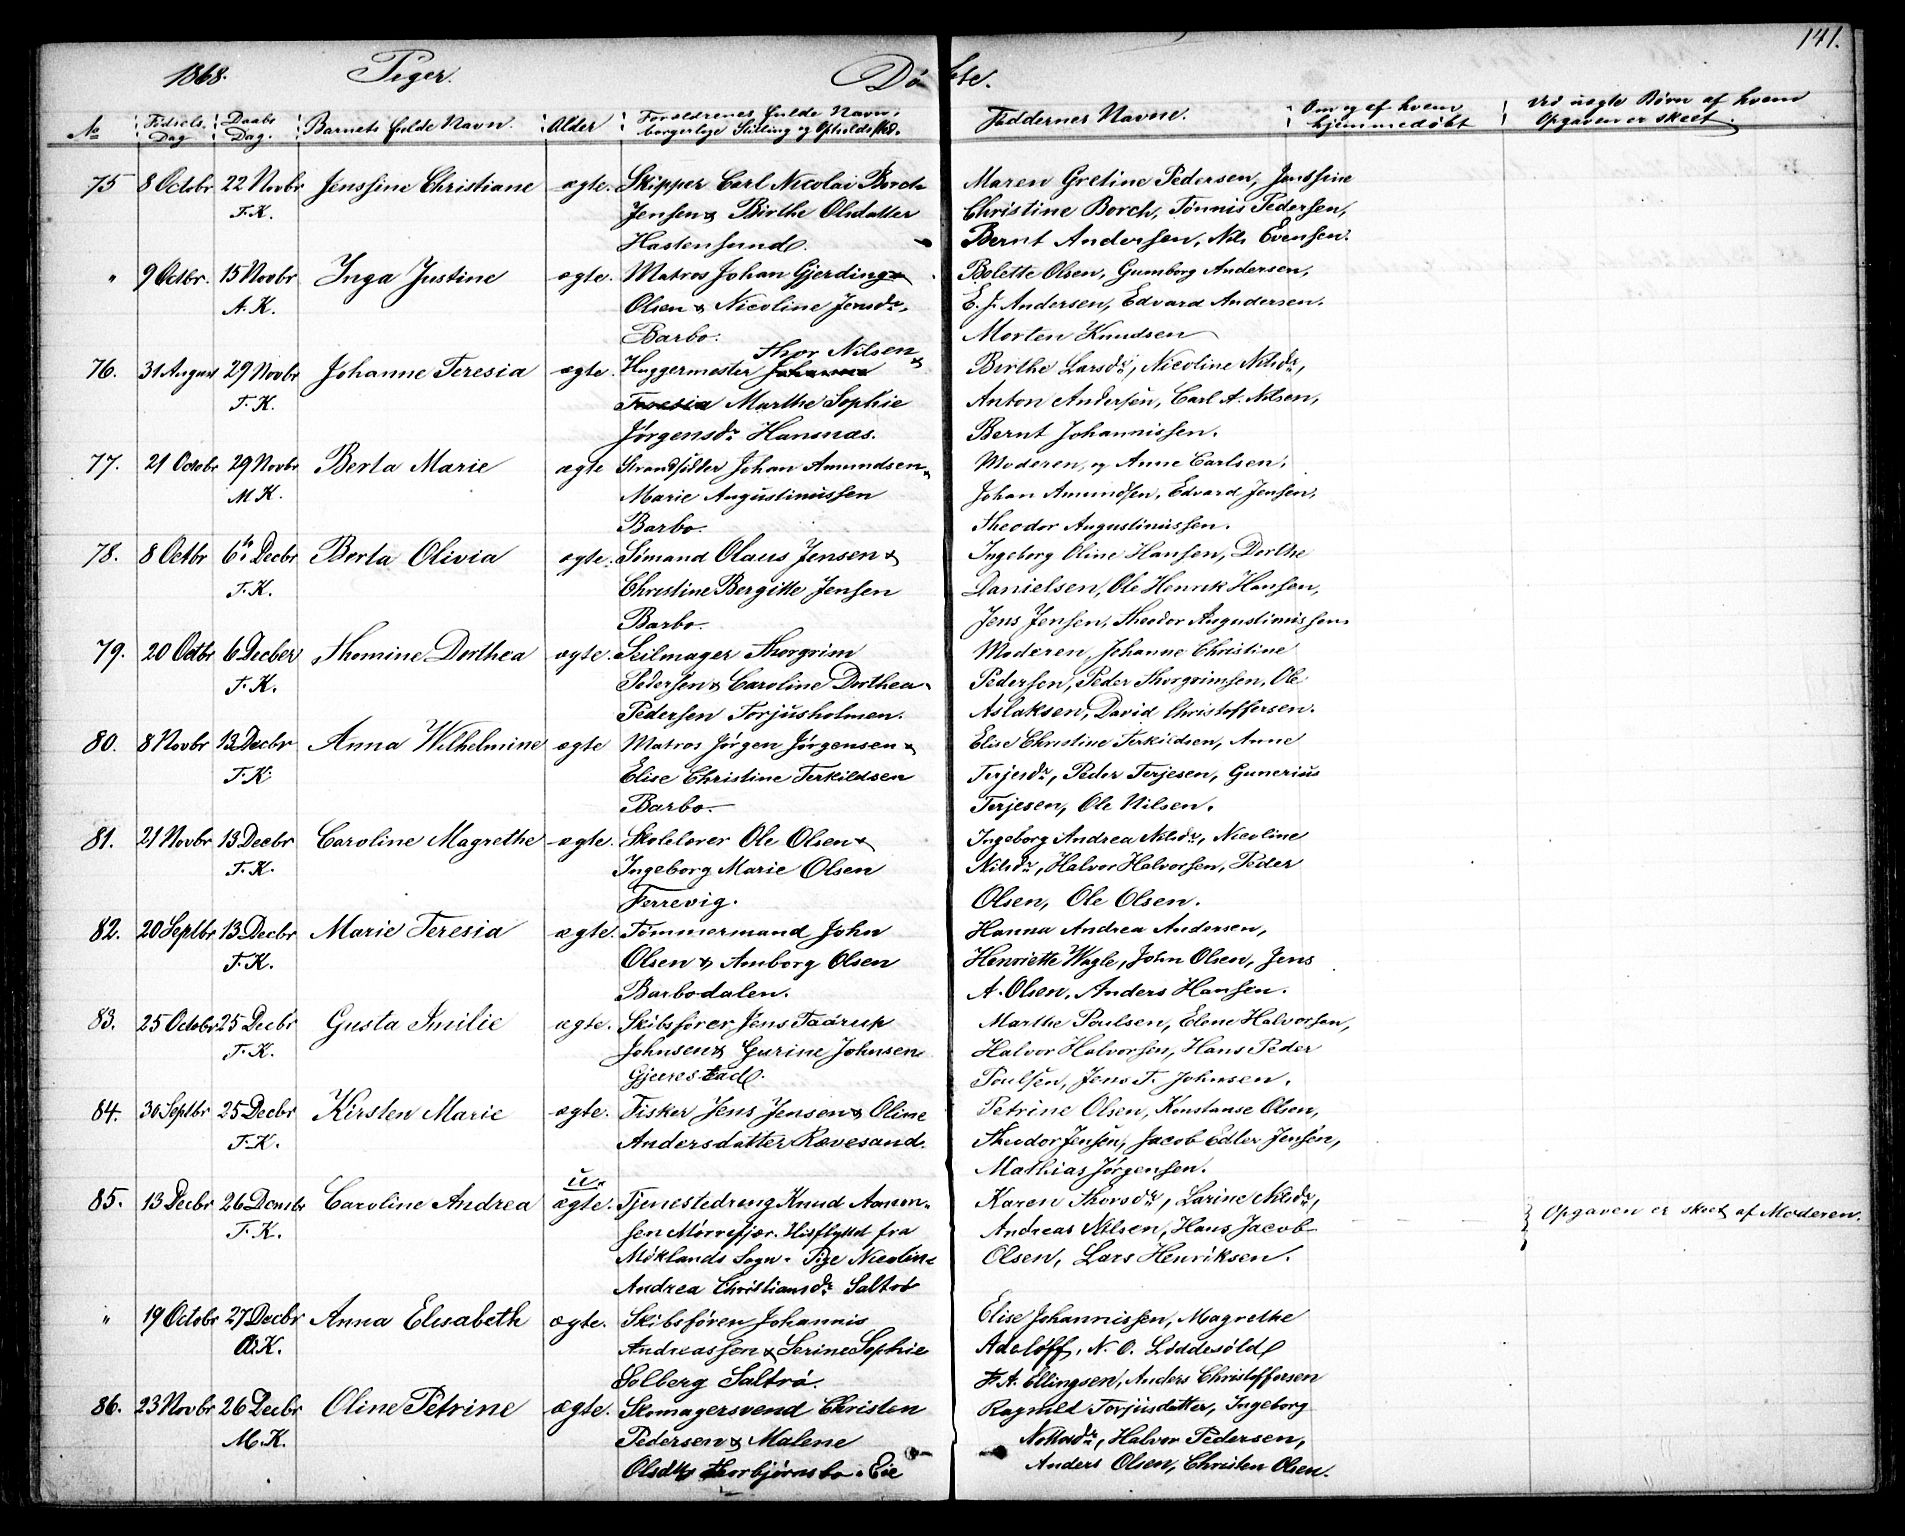 141.
1868. Piger. Døbte.
No | Fødsels Dag | Daabs Dag. | Barnets fulde Navn. | Alder | Forældrenes fulde Navn, borgerlige Stilling og Opholdssted. | Faddernes Navne. | Om og af hvem hjemmedøbt | Ved uægte Børn af hvem Opgaven er skeet.
75 8 Octobr 22 Novbr Jensine Christiane ægte. Skipper Carl Nicolai Borch Maren Gretine Pedersen, Jenssine
T.K. Jensen & Birthe Olsdatter Christine Borch, Tønnis Pedersen,
Hastensund. Bernt Andersen, Nils Evensen.
" 9 Octbr. 15 Novbr Inga Justine ægte. Matros Johan Gjerding Belette Olsen, Gumborg Andersen,
A.K. Olsen & Nicoline Jensdr, E. J. Andersen, Edvard Andersen.
Barbo. Morten Knudsen
Thor Nilsen &
76. 31 August 29 Novbr Johanne Teresia ægte. Huggermester Johanne Birthe Larsdr, Nicoline Nilsdr,
T.K. Teresia Marthe Sophie Anton Andersen, Carl A. Nilsen,
Jørgensdr Hansnæs. Bernt Johannissen.
77. 21 Octobr 29 Novbr Berta Marie ægte Strandsidder Johan Amundsen & Moderen, og Anne Carlsen,
M.K. Marie Augustinussen Johan Amundsen, Edvard Jensen,
Barbo. Theodor Augustinussen.
78. 8 Octbr 6te Decbr Berta Olivia ægte. Sømand Olaus Jensen & Ingeborg Oline Hansen, Dorthe
T.K. Christine Bergitte Jensen Danielsen, Ole Henrik Hansen,
Barbo. Jens Jensen, Theodor Augustinussen
79. 20 Octbr 6 Decber Thomine Dorthea ægte. Seilmager Thorgrim Moderen, Johanne Christine
T.K. Pedersen & Caroline Dorthea Pedersen, Peder Thorgrimsen, Ole
Pedersen Torjusholmen. Aslaksen, David Christoffersen.
80. 8 Novbr 13 Decbr Anna Wilhelmine ægte Matros Jørgen Jørgensen & Elise Christine Terkildsen, Anne
T.K. Elise Christine Terkildsen Terjesdr, Peder Terjesen, Gunerius
Barbo. Terjesen, Ole Nilsen.
81. 21 Novbr 13 Decbr Caroline Magrethe ægte. Skolelærer Ole Olsen & Ingeborg Andrea Nilsdr, Nicoline
T.K. Ingeborg Marie Olsen Nilsdr, Halvor Halvorsen, Peder
Ferrevig. Olsen, Ole Olsen.
82. 20 Septbr 13 Decbr Marie Teresia ægte. Tømmermand John Hanna Andrea Andersen,
T.K. Olsen & Amborg Olsen Henriette Wagle, John Olsen, Jens
Barbodalen. A. Olsen, Anders Hansen.
83. 25 Octobr 25 Decbr Gusta Emilie ægte. Skibsfører Jens Taarup Marthe Poulsen, Elene Halvorsen,
T.K. Johnsen & Gurine Johnsen Halvor Halvorsen, Hans Peder
Gjerestad. Poulsen, Jens T. Johnsen.
84. 30 Septbr 25 Decbr Kirsten Marie ægte. Fisker Jens Jensen & Oline Petrine Olsen, Konstanse Olsen,
T.K. Andersdatter Rævesand. Theodor Jensen, Jacob Edler Jensen,
Mathias Jørgensen.
u.
85. 13 Decbr 26 Decmbr Caroline Andrea ægte. Tjenestedreng Knud Aanon- Karen Thorsdr, Larine Nilsdr, Opgaven er skeet af Moderen.
T.K. sen Mørrefjær. Hidflyttet fra Andreas Nilsen, Hans Jacob
Møklands Sogn. Pige Nicoline Olsen, Lars Henriksen.
Andrea Christiansdr Saltrø
" 19 Octobr 27 Decbr Anna Elisabeth ægte. Skibsføren Johannis Elise Johannissen, Magrethe
Ø.K. Andreassen & Serine Sophie Adeloff, N. O. Løddesøld
Solberg Saltrø. A. Ellingsen, Anders Christoffersen
86. 23 Novbr 26 Decbr Oline Petrine ægte. Skomagersvend Christen Ragnild Torjusdatter, Ingeborg
M.K. Pedersen & Malene Halvor Pedersen,
Olsdtr Thorbjørnsbo. Eie Anders Olsen, Christen Olsen.